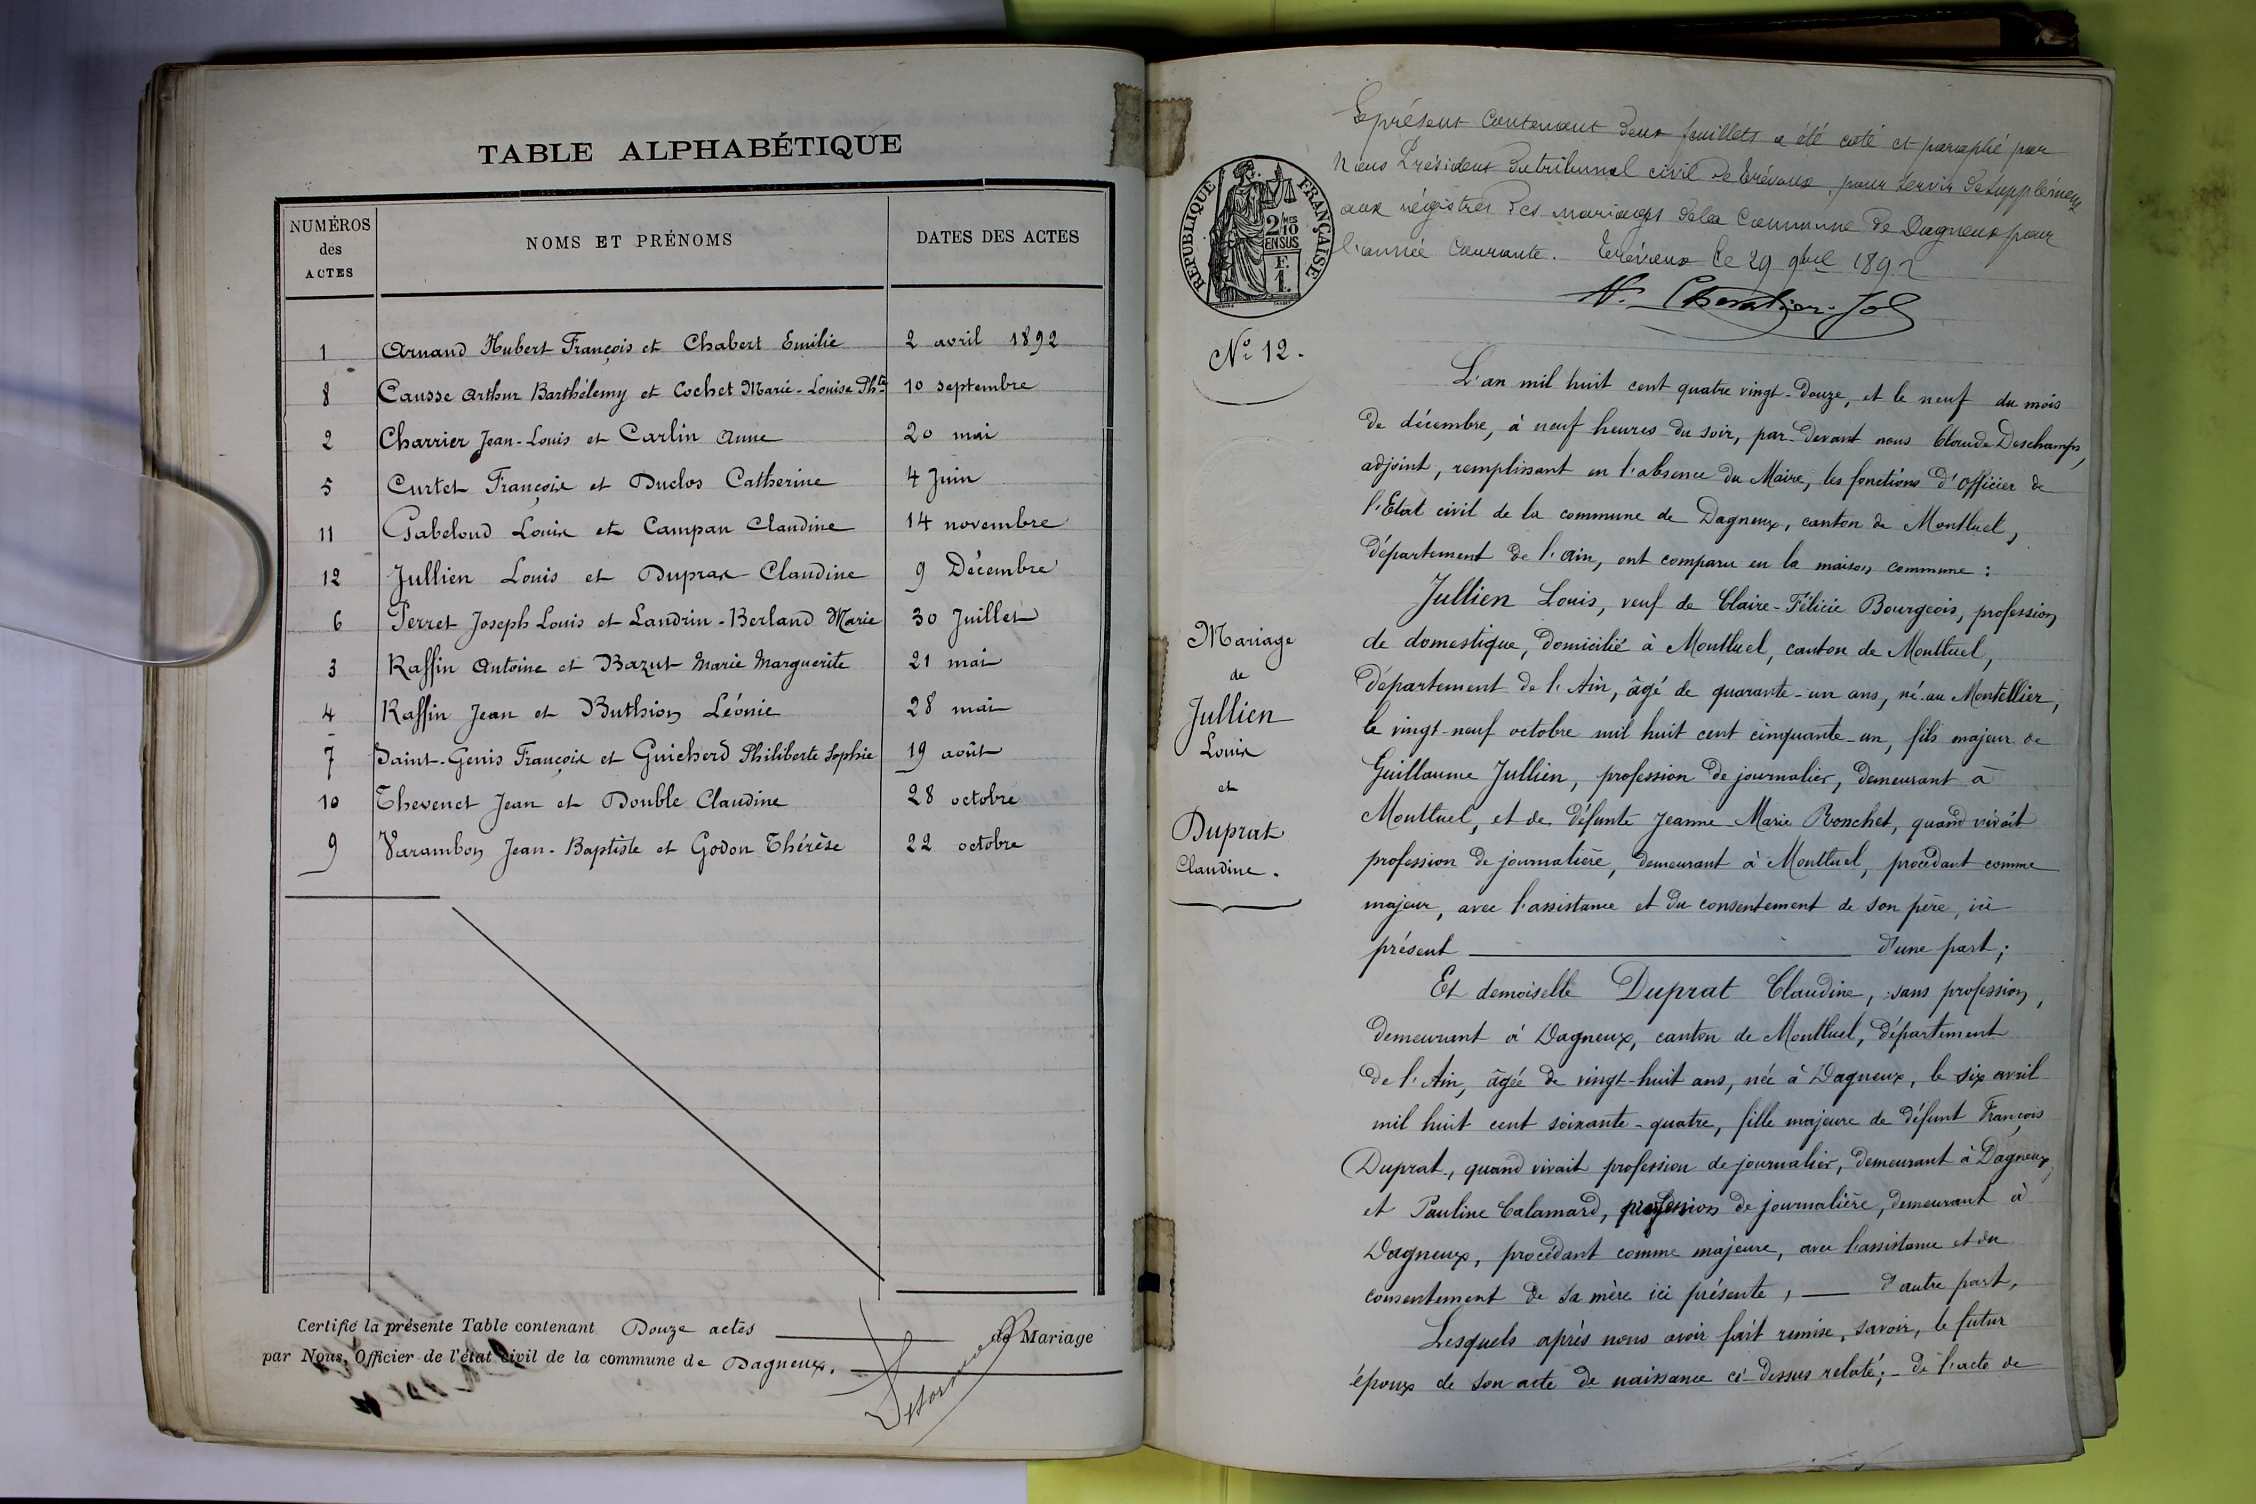 TABLE ALPHABÉTIQUE
NUMÉROS des ACTES NOMS ET PRÉNOMS DATES DES ACTES
1 Arnaud Hubert François et Chabert Emilie 2 avril 1892
8 Causse Arthur Barthélemy et Cochet Marie-Louise Phte 10 septembre
2 Charrier Jean-Louis et Carlin Anne 20 mai
5 Curtet François et Duclos Catherine 4 Juin
11 Gabeloud Louis et Campan Claudine 14 novembre
12 Jullien Louis et Duprat Claudine 9 Décembre
6 Perret Joseph Louis et Landrin-Berland Marie 30 Juillet
3 Raffin Antoine et Bazut Marie Marguerite 21 mai
4 Raffin Jean et Buthion Léonie 28 mai
7 Saint-Genis François et Guicherd Philiberte Sophie 19 août
10 Thevenet Jean et Double Claudine 28 octobre
9 Varambon Jean-Baptiste et Godon Thérèse 22 octobre
Certifié la présente Table contenant Douze actes de Mariage
par Nous, Officier de l'état civil de la commune de Dagneux.
Le présent contenant deux feuillets a été coté et paraphé par
Nous Président du tribunal civil de Trévoux, pour servir de supplément
aux régistres des mariages de la Commune de Dagneux pour
l'année courante. Trévoux le 29 9bre 1892
RÉPUBLIQUE FRANÇAISE
2/10 MES
EN SUS
F.
1.
No 12.
L'an mil huit cent quatre vingt-douze, et le neuf du mois
de décembre, à neuf heures du soir, par-devant nous Claude Deschamps,
adjoint, remplissant en l'absence du Maire, les fonctions d'Officier de
l'Etat civil de la commune de Dagneux, canton de Montluel,
département de l'Ain, ont comparu en la maison commune :
Mariage
de
Jullien
Louis
et
Duprat
Claudine.
Jullien Louis, veuf de Claire-Félicie Bourgeois, profession
de domestique, domicilié à Montluel, canton de Montluel,
département de l'Ain, âgé de quarante-un ans, né au Montellier,
le vingt-neuf octobre mil huit cent cinquante-un, fils majeur de
Guillaume Jullien, profession de journalier, demeurant à
Montluel, et de défunte Jeanne-Marie Ronchet, quand vivait
profession de journalière, demeurant à Montluel, procédant comme
majeur, avec l'assistance et du consentement de son père, ici
présent d'une part ;
Et demoiselle Duprat Claudine, sans profession,
demeurant à Dagneux, canton de Montluel, département
de l'Ain, âgée de vingt-huit ans, née à Dagneux, le six avril
mil huit cent soixante-quatre, fille majeure de défunt François
Duprat, quand vivait profession de journalier, demeurant à Dagneux,
et Pauline Calamard, profession de journalière, demeurant à
Dagneux, procédant comme majeure, avec l'assistance et du
consentement de sa mère ici présente, d'autre part,
Lesquels après nous avoir fait remise, savoir, le futur
époux de son acte de naissance ci-dessus relaté ; de l'acte de